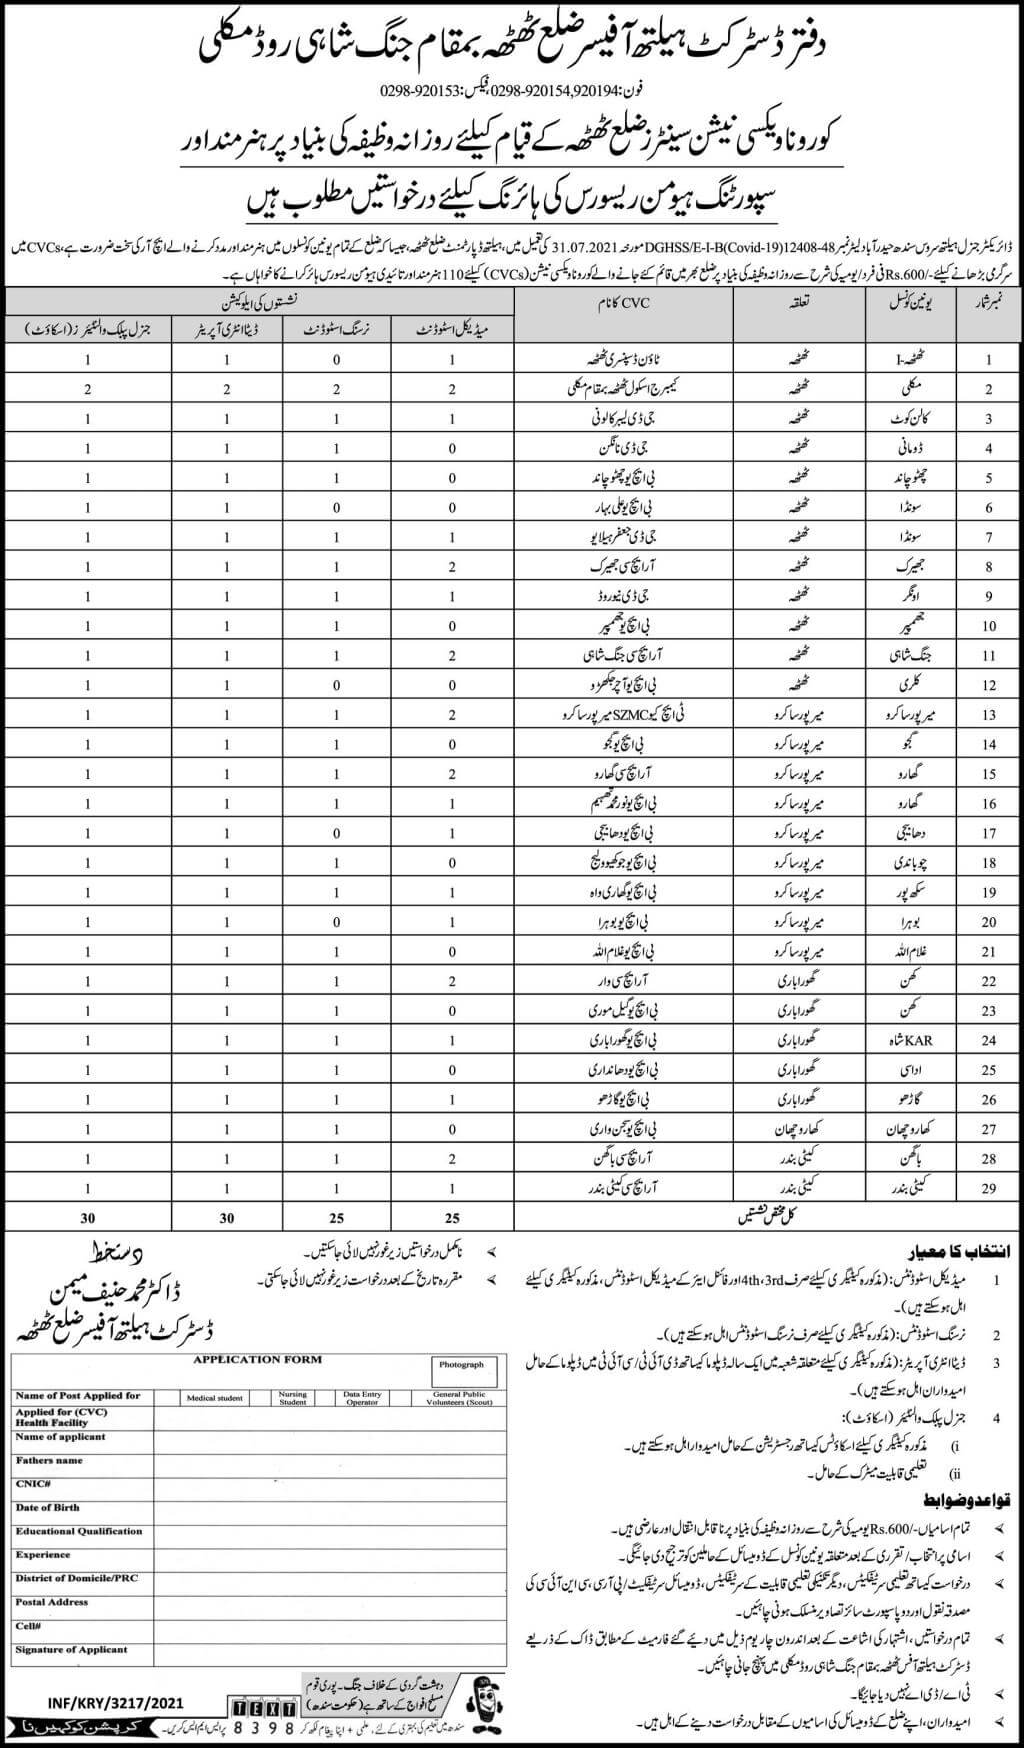 دفتر ڈسٹرکٹ ہیلتھ آفیسر ضلع ٹھٹھہ بمقام جنگ شاہی روڈ مکلی
فون:0298-920154,920194، فیکس:0298-920153
کورونا ویکسی نیشن سینٹرز ضلع ٹھٹھہ کے قیام کیلئے روزانہ وظیفہ کی بنیاد پر ہنرمند اور
سپورٹنگ ہیومن ریسورس کی ہائرنگ کیلئے درخواستیں مطلوب ہیں
ڈائریکٹر جنرل ہیلتھ سروس سندھ حیدرآباد لیٹر نمبر DGHSS/E-I-B(Covid-19)12408-48 مورخہ 31.07.2021 کی تعمیل میں، ہیلتھ ڈپارٹمنٹ ضلع ٹھٹھہ، جیسا کہ ضلع کے تمام یونین کونسلوں میں ہنرمند اور مدد کرنے والے ایچ آر کی سخت ضرورت ہے، CVCs میں
سرگرمی بڑھانے کیلئے -/Rs.600 فی فرد/یومیہ کی شرح سے روزانہ وظیفہ کی بنیاد پر ضلع بھر میں قائم کئے جانے والے کورونا ویکسی نیشن (CVCs) کیلئے 110 ہنرمند اور تائیدی ہیومن ریسورس ہائر کرانے کا خواہاں ہے۔
نمبر شمار یونین کونسل تعلقہ CVC کا نام نشستوں کی ایلوکیشن
میڈیکل اسٹوڈنٹ نرسنگ اسٹوڈنٹ ڈیٹا انٹری آپریٹر جنرل پبلک والنٹیئرز (اسکاؤٹ)
1 ٹھٹھہ-I ٹھٹھہ ٹاؤن ڈسپنسری ٹھٹھہ 1 0 1 1
2 مکلی ٹھٹھہ کیمبرج اسکول ٹھٹھہ بمقام مکلی 2 2 2 2
3 کالن کوٹ ٹھٹھہ جی ڈی لیبر کالونی 1 1 1 1
4 ڈومانی ٹھٹھہ جی ڈی نانگن 0 1 1 1
5 چھتو چاند ٹھٹھہ بی ایچ یو چھتو چاند 0 1 1 1
6 سونڈا ٹھٹھہ بی ایچ یو علی بہار 0 0 1 1
7 سونڈا ٹھٹھہ جی ڈی جعفر ہیلایو 1 1 1 1
8 جھیرک ٹھٹھہ آر ایچ سی جھیرک 2 1 1 1
9 اونگر ٹھٹھہ جی ڈی نیو روڈ 1 1 1 1
10 جھمپیر ٹھٹھہ بی ایچ یو جھمپیر 0 1 1 1
11 جنگ شاہی ٹھٹھہ آر ایچ سی جنگ شاہی 2 1 1 1
12 کلری ٹھٹھہ بی ایچ یو آچر جکھڑو 0 0 1 1
13 میرپور ساکرو میرپور ساکرو ٹی ایچ کیو SZMC میرپور ساکرو 2 1 1 1
14 گجو میرپور ساکرو بی ایچ یو گجو 0 1 1 1
15 گھارو میرپور ساکرو آر ایچ سی گھارو 2 1 1 1
16 گھارو میرپور ساکرو بی ایچ یو نور محمد تھہیم 1 1 1 1
17 دھابیجی میرپور ساکرو بی ایچ یو دھابیجی 1 0 1 1
18 چوبانڈی میرپور ساکرو بی ایچ یو جوکھیو ولیج 0 1 1 1
19 سکھ پور میرپور ساکرو بی ایچ یو گھاری واہ 1 1 1 1
20 بوہرا میرپور ساکرو بی ایچ یو بوہرا 1 0 1 1
21 غلام اللہ میرپور ساکرو بی ایچ یو غلام اللہ 0 1 1 1
22 کھن گھوراباری آر ایچ سی وار 2 1 1 1
23 کھن گھوراباری بی ایچ یو گیل موری 0 1 1 1
24 KAR شاہ گھوراباری بی ایچ یو گھوراباری 1 1 1 1
25 اداسی گھوراباری بی ایچ یو دھانداری 0 1 1 1
26 گاڑھو گھوراباری بی ایچ یو گاڑھو 1 1 1 1
27 کھارو چھان کھارو چھان بی ایچ یو سجن واری 0 1 1 1
28 باگھن کیٹی بندر آر ایچ سی باگھن 2 1 1 1
29 کیٹی بندر کیٹی بندر آر ایچ سی کیٹی بندر 1 1 1 1
کل مختص نشستیں 25 25 30 30
انتخاب کا معیار
1 میڈیکل اسٹوڈنٹس: (مذکورہ کیٹیگری کیلئے صرف 4th،3rd اور فائنل ایئر کے میڈیکل اسٹوڈنٹس، مذکورہ کیٹیگری کیلئے
اہل ہوسکتے ہیں)۔
2 نرسنگ اسٹوڈنٹس: (مذکورہ کیٹیگری کیلئے صرف نرسنگ اسٹوڈنٹس اہل ہوسکتے ہیں)۔
3 ڈیٹا انٹری آپریٹر: (مذکورہ کیٹیگری کیلئے متعلقہ شعبہ میں ایک سالہ ڈپلوما کیساتھ ڈی آئی ٹی/سی آئی ٹی میں ڈپلوما کے حامل
امیدواران اہل ہوسکتے ہیں)۔
4 جنرل پبلک والنٹیئر (اسکاؤٹ):
(i مذکورہ کیٹیگری کیلئے اسکاؤٹس کیساتھ رجسٹریشن کے حامل امیدوار اہل ہوسکتے ہیں۔
(ii تعلیمی قابلیت میٹرک کے حامل۔
قواعد و ضوابط
➢ تمام اسامیاں -/Rs.600 یومیہ کی شرح سے روزانہ وظیفہ کی بنیاد پر نا قابل انتقال اور عارضی ہیں۔
➢ اسامی پر انتخاب/تقرری کے بعد متعلقہ یونین کونسل کے ڈومیسائل کے حاملین کو ترجیح دی جائیگی۔
➢ درخواست کیساتھ تعلیمی سرٹیفکیٹس، دیگر تکنیکی تعلیمی قابلیت کے سرٹیفکیٹس، ڈومیسائل سرٹیفکیٹ/پی آر سی، سی این آئی سی کی
مصدقہ نقول اور دو پاسپورٹ سائز تصاویر منسلک ہونی چاہئیں۔
➢ تمام درخواستیں، اشتہار کی اشاعت کے بعد اندرون چار یوم ذیل میں دیئے گئے فارمیٹ کے مطابق ڈاک کے ذریعے
ڈسٹرکٹ ہیلتھ آفس ٹھٹھہ بمقام جنگ شاہی روڈ مکلی میں پہنچ جانی چاہیں۔
➢ ٹی اے/ڈی اے نہیں دیا جائیگا۔
➢ امیدواران، اپنے ضلع کے ڈومیسائل کی اسامیوں کے مقابل درخواست دینے کے اہل ہیں۔
➢ نامکمل درخواستیں زیر غور نہیں لائی جاسکتیں۔
➢ مقررہ تاریخ کے بعد درخواست زیر غور نہیں لائی جاسکتی۔
دستخط
ڈاکٹر محمد حنیف میمن
ڈسٹرکٹ ہیلتھ آفیسر ضلع ٹھٹھہ
APPLICATION FORM
Photograph
Name of Post Applied for Medical student Nursing Student Data Entry Operator General Public Volunteers (Scout)
Applied for (CVC) Health Facility
Name of applicant
Fathers name
CNIC#
Date of Birth
Educational Qualification
Experience
District of Domicile/PRC
Postal Address
Cell#
Signature of Applicant
INF/KRY/3217/2021
کرپشن کو کہیں نا
TEXT
8398
دہشت گردی کے خلاف جنگ۔ پوری قوم
مسلح افواج کے ساتھ ہے (حکومت سندھ)
سندھ میں تعلیم کی بہتری کے لئے، ملمی + اپنا پیغام لکھ کر 8398 پر ایس ایم ایس کریں۔